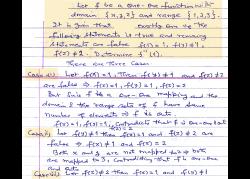 Let f be a one-one function with
domain {x,y,z} and range {1,2,3}.
It is given that exactly one of the
following statements is true and remaining
statements are false f(x)=1, f(y)≠1,
f(z)≠2. Determine f⁻¹(1).
There are three cases
Case (i) Let f(x)=1, Then f(y)≠1 and f(z)≠2
are false ⇒ f(x)=1, f(y)=1, f(z)=2
But since f is a one-one mapping and the
f have same
number of elements
f(x)=1, f(y)=1, contradicting that f is one-one
Let f(y)≠1 then f(x)=1 and f(z)≠2 are
false
Both x and y are not mapped to
are mapped to 3, contradicting that f is one-one
and onto
Case (iii) Let f(z)≠2 then f(x)=1 and f(y)≠1